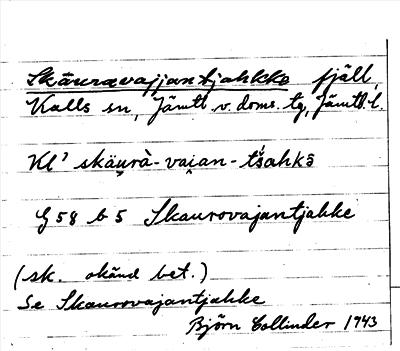 Skäuravajjantjahkke fjäll,
Kalls sn, Jämtl. v. doms. tg, Jämtl. l.
Kl' skäu̯rà-vai̯an-tšahkə̄
G 58 b 5 Skaurovajantjakke
(sk. okänd bet.)
Se Skaurovajantjakke
Björn Collinder 1943